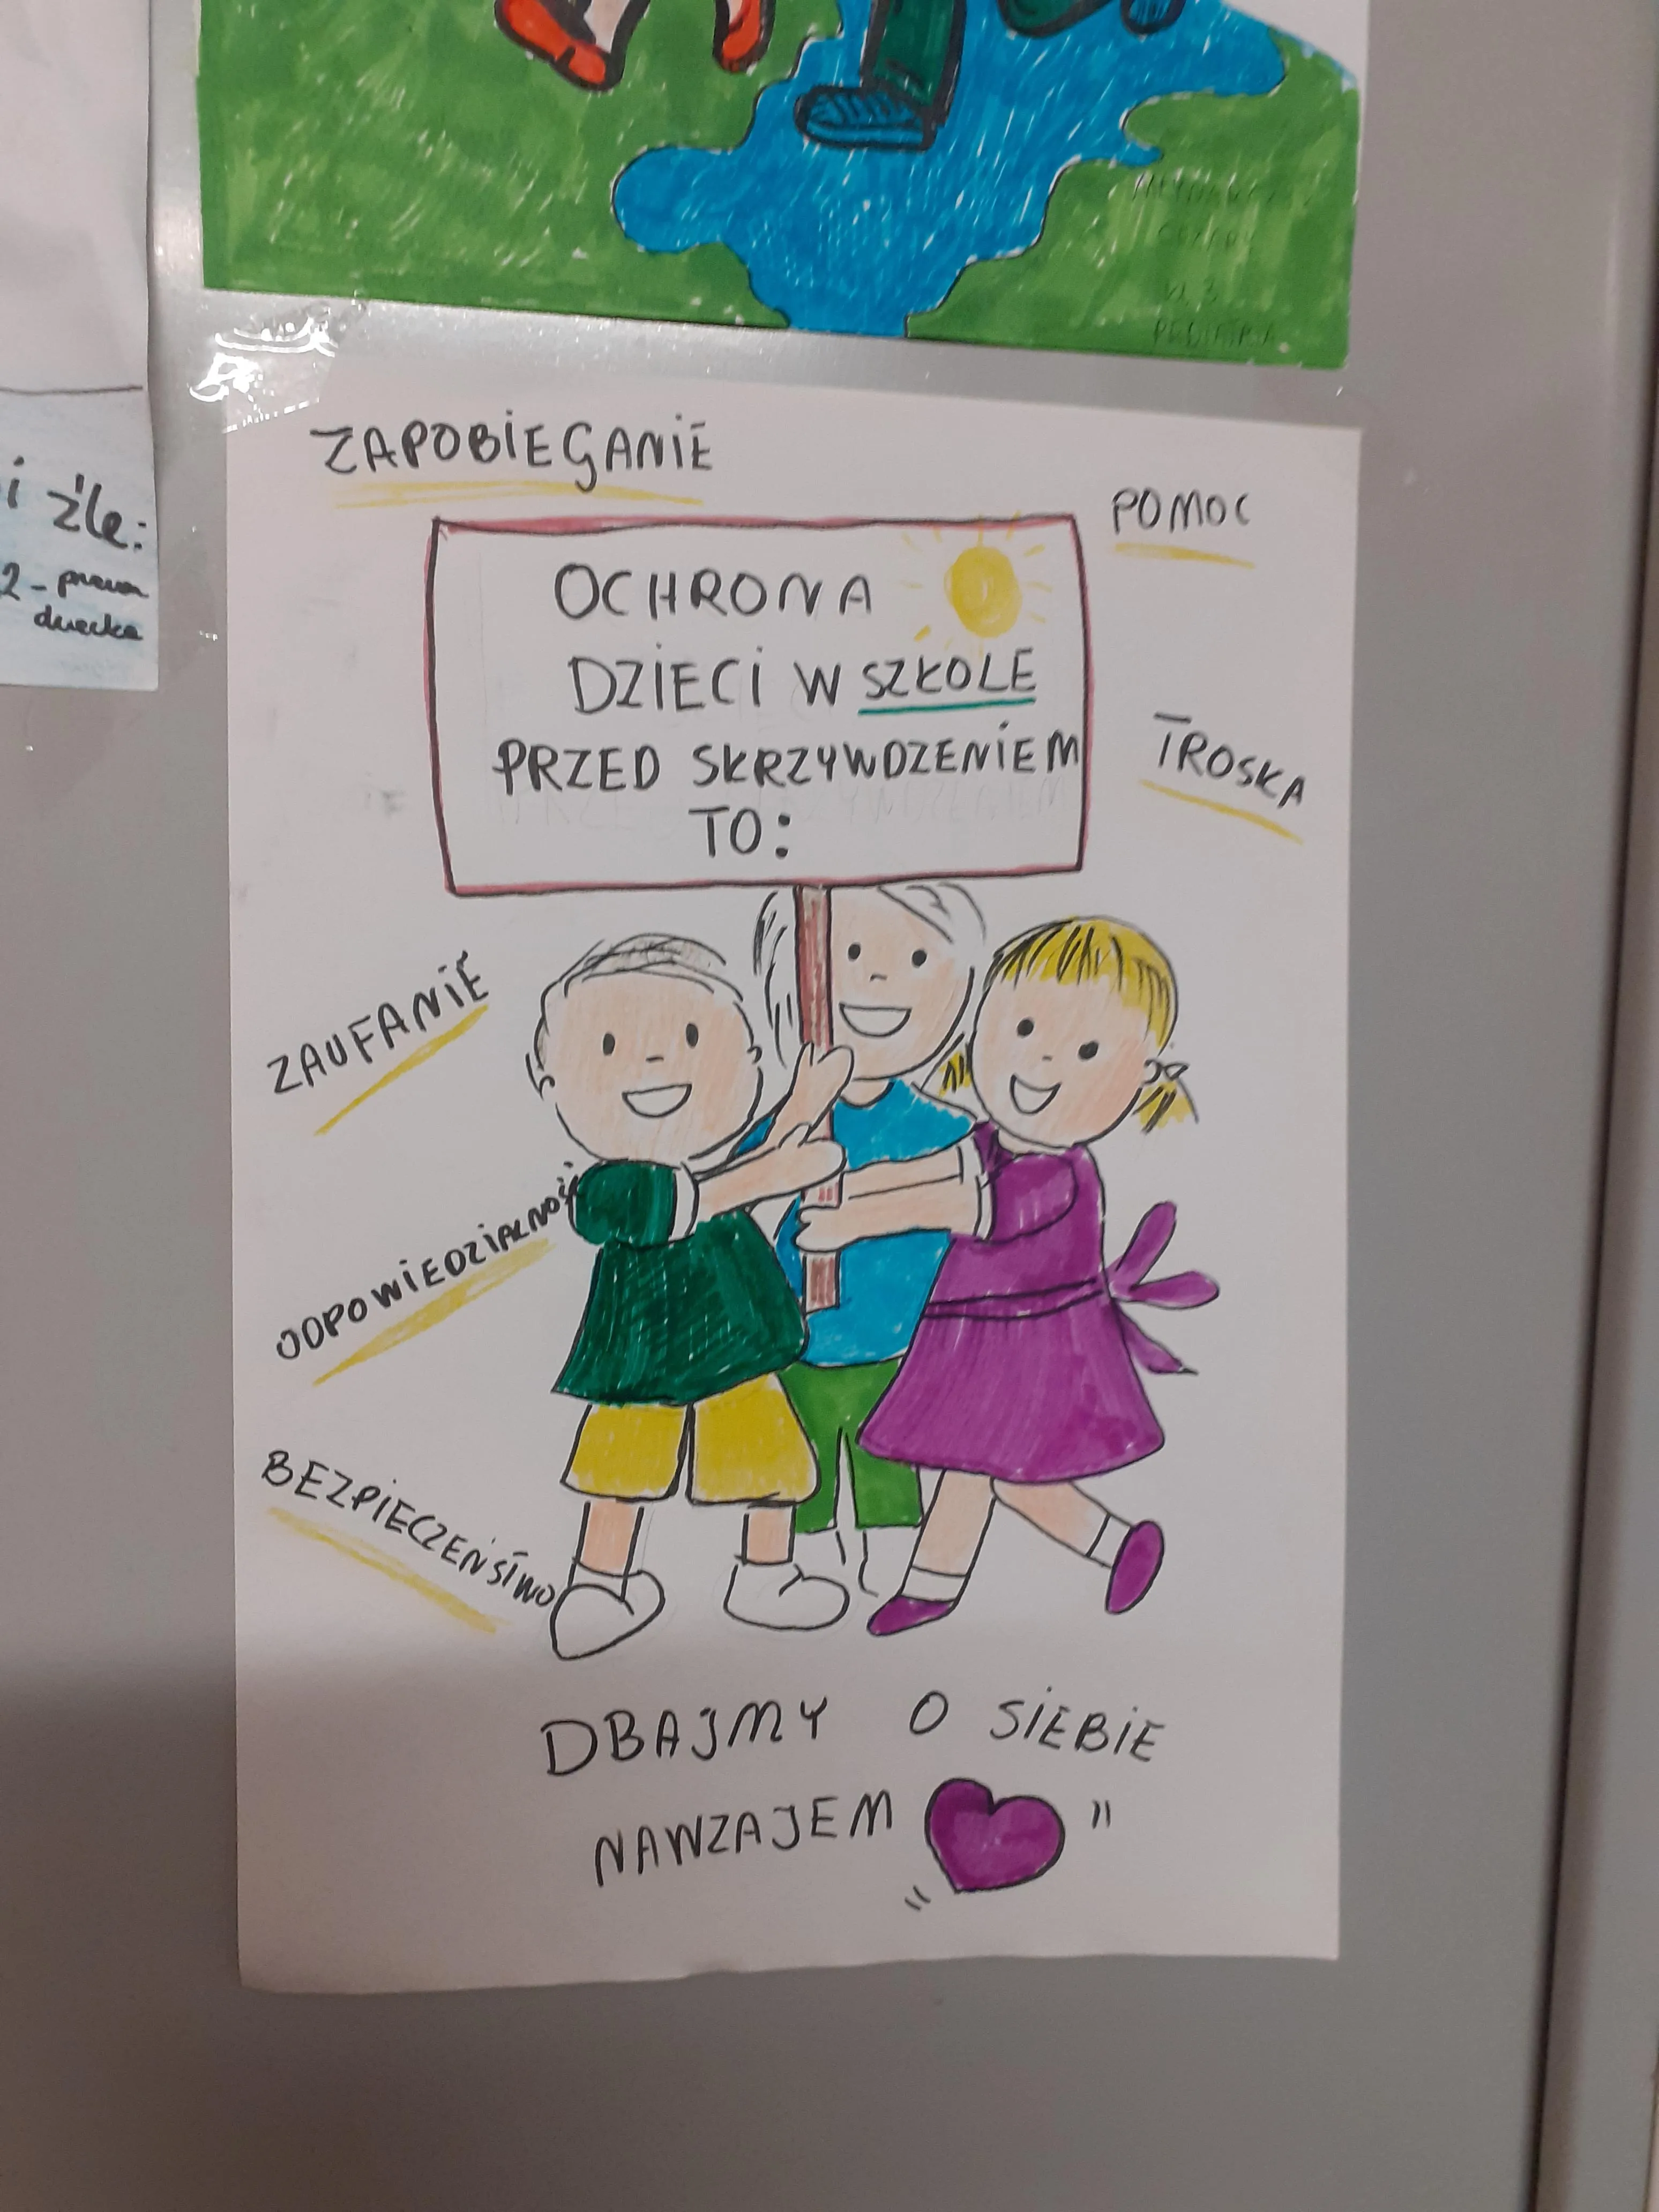 i źle:
2 - prawa
dziecka
ZAPOBIEGANIE
POMOC
OCHRONA
DZIECI W SZKOLE
PRZED SKRZYWDZENIEM
TO:
TROSKA
ZAUFANIE
ODPOWIEDZIALNOŚ
BEZPIECZEŃSTWO
DBAJMY O SIEBIE
NAWZAJEM